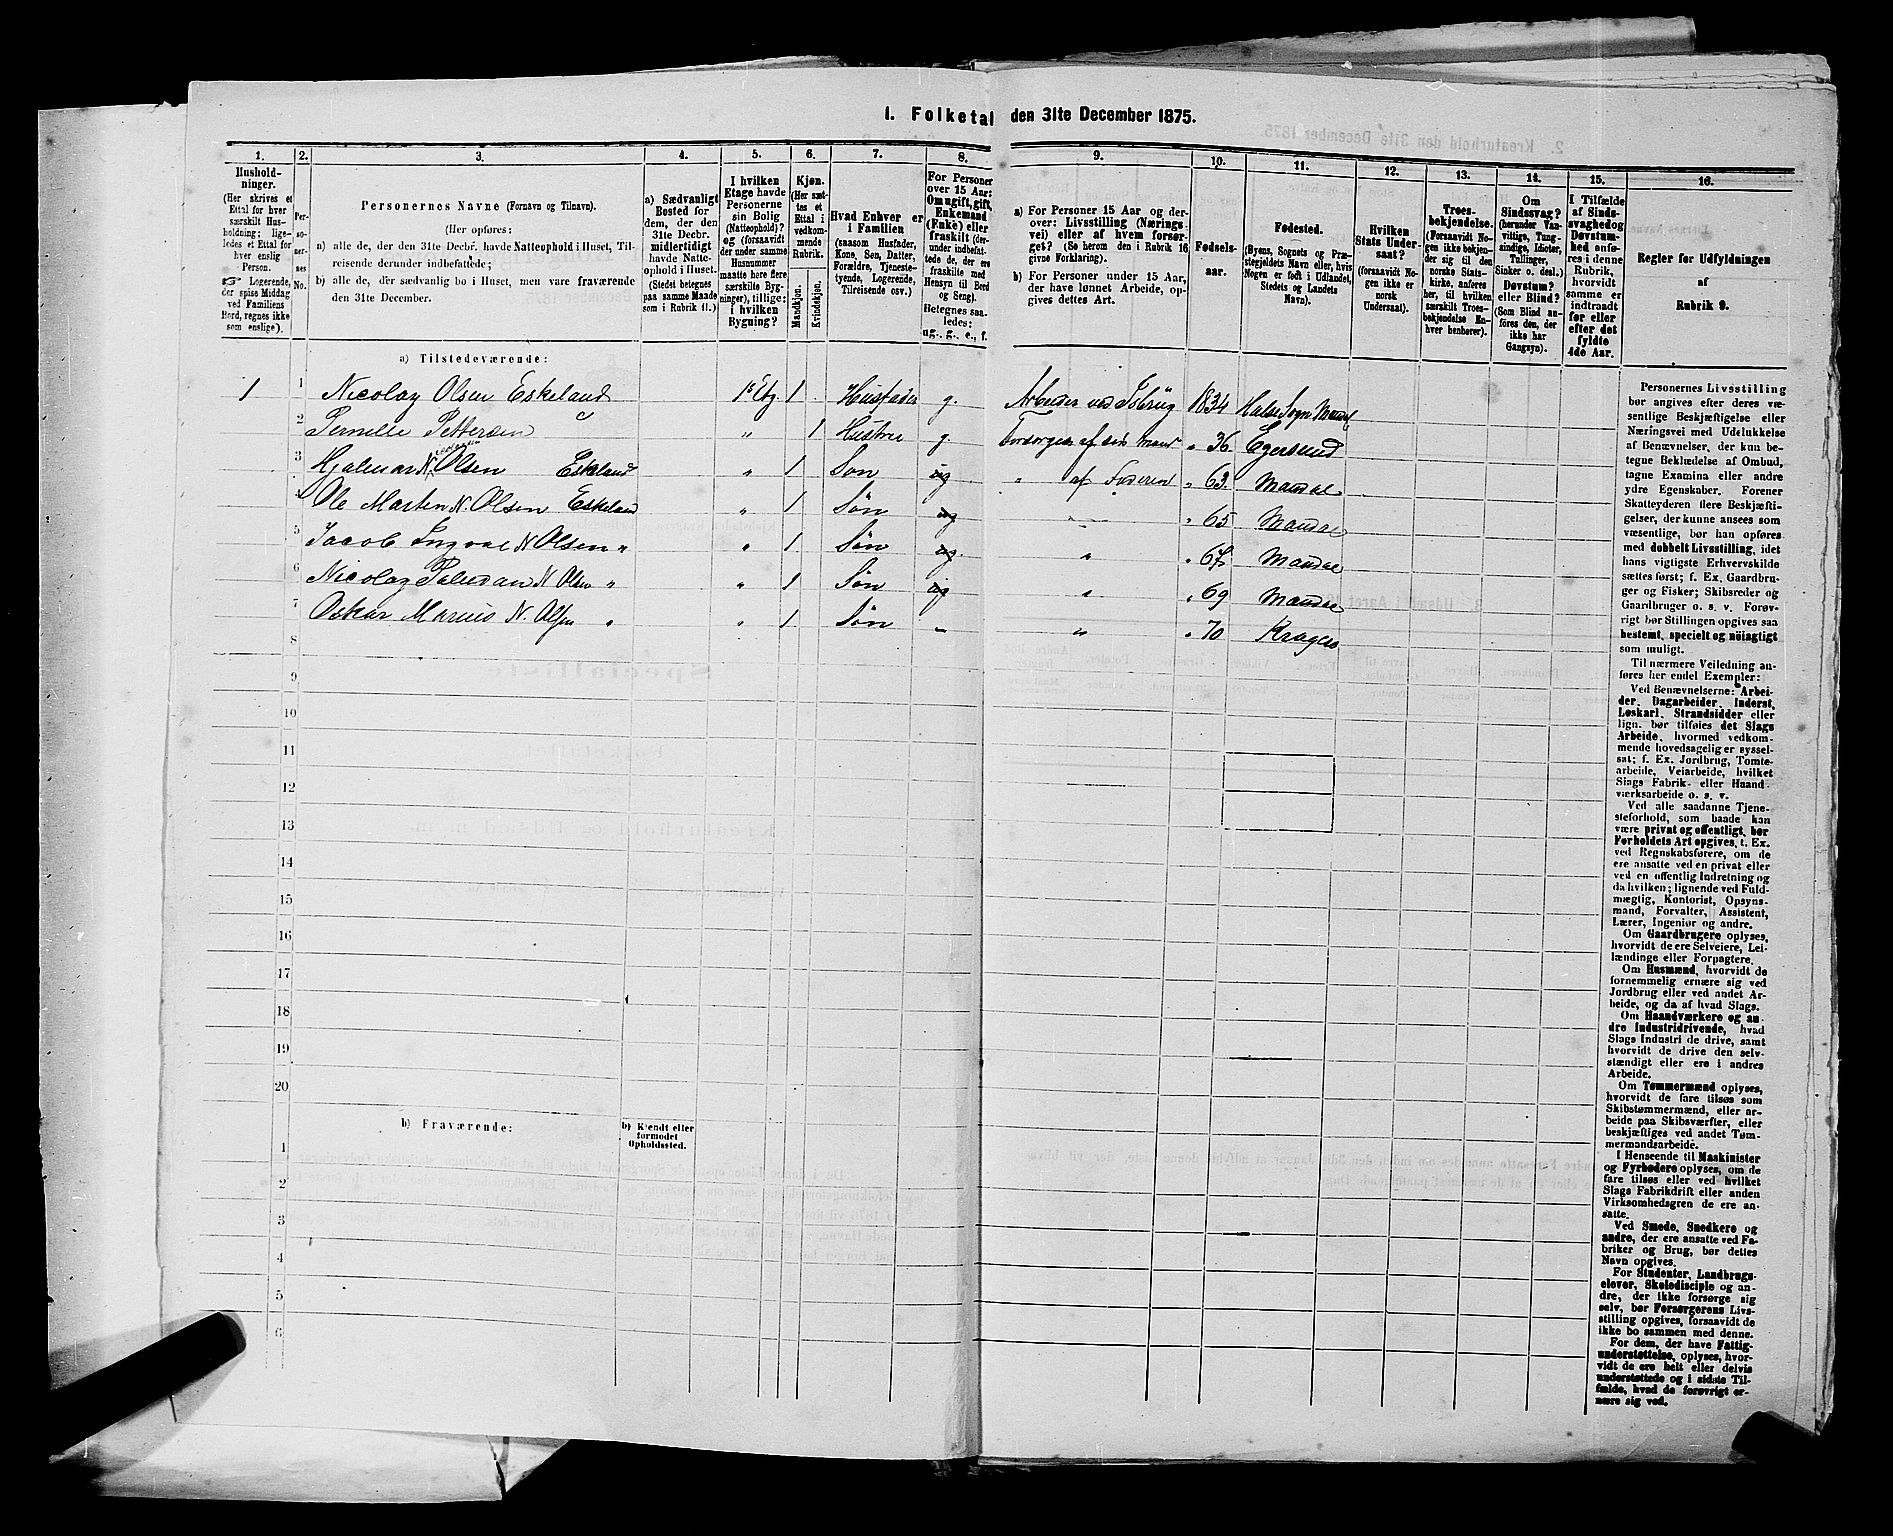 I. Folketal den 31te December 1875.
1. 2. 3. 4. 5. 6. 7. 8. 9. 10. 11. 12. 13. 14. 15. 16.
Hushold-
ninger.
(Her skrives et
Ettal for hver
særskilt Hus-
holdning; lige-
ledes et Ettal for
hver enslig
Person.
☞ Logerende,
der spise Middag
ved Familiens
Bord, regnes ikke
som enslige).
Per-
so-
ner-
nes
No.
Personernes Navne (Fornavn og Tilnavn).
(Her opføres:
a) alle de, der den 31te Decbr. havde Natteophold i Huset, Til-
reisende derunder indbefattede;
b) alle de, der sædvanlig bo i Huset, men vare fraværende
den 31te December.
a) Sædvanligt
Bosted for
dem, der den
31te Decbr.
midlertidigt
havde Natte-
ophold i Huset.
(Stedet betegnes
paa samme Maade
som i Rubrik 11.)
I hvilken
Etage havde
Personerne
sin Bolig
(Natteophold)?
og (forsaavidt
der under samme
Husnummer
maatte høre flere
særskilte Byg-
ninger), tillige:
i hvilken
Bygning?
Kjøn.
(Her sæt-
tes et
Ettal i
vedkom-
mende
Rubrik.
Mandkjøn.
Kvindekjøn.
Hvad Enhver er
i Familien
(saasom Husfader,
Kone, Søn, Datter,
Forældre, Tjeneste-
tyende, Logerende,
Tilreisende osv.)
For Personer
over 15 Aar:
Om ugift, gift,
Enkemand
(Enke) eller
fraskilt (der-
under indbefat-
tede de, der ere
fraskilte med
Hensyn til Bord
og Seng).
Betegnes saa-
ledes:
ug., g., e., f.
a) For Personer 15 Aar og der-
over: Livsstilling (Nærings-
vei) eller af hvem forsør-
get? (Se herom den i Rubrik 16
givne Forklaring).
b) For Personer under 15 Aar,
der have lønnet Arbeide, op-
gives dettes Art.
Fødsels-
aar.
Fødested.
(Byens, Sognets og Præ-
stegjeldets Navn eller, hvis
Nogen er født i Udlandet,
Stedets og Landets
Navn).
Hvilken
Stats Under-
saat?
(forsaavidt No-
gen ikke er
norsk
Undersaat).
Troes-
bekjendelse.
(Forsaavidt No-
gen ikke bekjen-
der sig til den
norske Stats-
kirke, anføres
her, til hvilken
særskilt Troes-
bekjendelse En-
hver henhører).
Om
Sindssvag?
(herunder Van-
vittige, Tung-
sindige, Idioter,
Tullinger,
Sinker o. desl.)
Døvstum?
eller Blind?
(Som Blind an-
føres den, der
ikke har
Gangsyn).
I Tilfælde
af Sinds-
svaghed og
Døvstum-
hed anfø-
res i denne
Rubrik,
hvorvidt
samme er
indtraadt
før eller
efter det
fyldte
4de Aar.
Regler for Udfyldningen
af
Rubrik 9.
a) Tilstedeværende:
1 1 Nicolay Olsen Eskeland 1ste Etg. 1 Husfader g. Arbeider ved Isbrug 1834 Halse Sogn Mandal
2 Pernille Pettersen " " 1 Hustru g Forsørges af sin Mand " 36 Egersund
3 Hjalmar N. Olsen Eskeland " 1 Søn ug " af Faderen " 63. Mandal
4 Ole Marten N. Olsen Eskeland " 1 Søn ug " " 65 Mandal
5 Jacob Ingval N Olsen " " 1 Søn ug " " 67 Mandal
6 Nicolay Paludan N Olsen " " 1 Søn ug " " 69 Mandal
7 Oskar Marius N. Olsen " " 1 Søn " " " 70 Kragerø
8
9
10
11
12
13
14
15
16
17
18
19
20
b) Fraværende:
b) Kjendt eller
formodet
Opholdssted.
1
2
3
4
5
6
Personernes Livsstilling
bør angives efter deres væ-
sentlige Beskjæftigelse eller
Næringsvei med Udelukkelse
af Benævnelser, der kun be-
tegne Beklædelse af Ombud,
tagne Examina eller andre
ydre Egenskaber. Forener
Skatteyderen flere Beskjæfti-
gelser, der kunne ansees som
væsentlige, bør han opføres
med dobbelt Livsstilling, idet
hans vigtigste Erhvervskilde
sættes først; f. Ex. Gaardbru-
ger og Fisker; Skibsreder og
Gaardbruger o. s. v. Forøv-
rigt bør Stillingen opgives saa
bestemt, specielt og nöiagtigt
som muligt.
Til nærmere Veiledning an-
føres her endel Exempler:
Ved Benævnelserne: Arbei-
der, Dagarbeider, Inderst,
Løskarl, Strandsidder eller
lign. bør tilføies det Slags
Arbeide, hvormed vedkom-
mende hovedsagelig er syssel-
sat; f. Ex. Jordbrug, Tomte-
arbeide, Veiarbeide, hvilket
Slags Fabrik- eller Haand-
værksarbeide o. s. v.
Ved alle saadanne Tjene-
steforhold, som baade kan
være privat og offentligt, bør
Forholdets Art opgives, t. Ex.
ved Regnskabsførere, om de
ere ansatte ved en privat eller
ved en offentlig Indretning og
da hvilken; lignende ved Fuld-
mægtig, Kontorist, Opsyns-
mand, Forvalter, Assistent,
Lærer, Ingeniør og andre.
Om Gaardbrugere oplyses,
hvorvidt de ere Selveiere, Lei-
lændinge eller Forpagtere.
Om Husmænd, hvorvidt de
fornemmelig ernære sig ved
Jordbrug eller ved andet Ar-
beide, og da af hvad Slags.
Om Haandværkere og an-
dre Industridrivende, hvad
Slags Industri de drive, samt
hvorvidt de drive den selv-
stændigt eller ere i andres
Arbeide.
Om Tømmermænd oplyses,
hvorvidt de fare tilsøs som
Skibstømmermænd, eller ar-
beide paa Skibsværfter, eller
beskjæftiges ved andet Tøm-
mermandsarbeide.
I Henseende til Maskinister
og Fyrbødere oplyses, om de
fare tilsøs eller ved hvilket
Slags Fabrikdrift eller anden
Virksomhedsgren de ere an-
satte.
Ved Smede, Snedkere og
andre, der ere ansatte ved Fa-
briker og Brug, bør dettes
Navn opgives.
For Studenter, Landbrugs-
elever, Skoledisciple og an-
dre, der ikke forsørge sig
selv, bør Forsørgerens Livs-
stilling opgives, forsaavidt de
ikke bo sammen med denne.
For dem, der have Fattig-
understøttelse, oplyses, hvor-
vidt de ere helt eller delvis
understøttede og i sidste Til-
fælde, hvad de forøvrigt er-
nære sig ved.